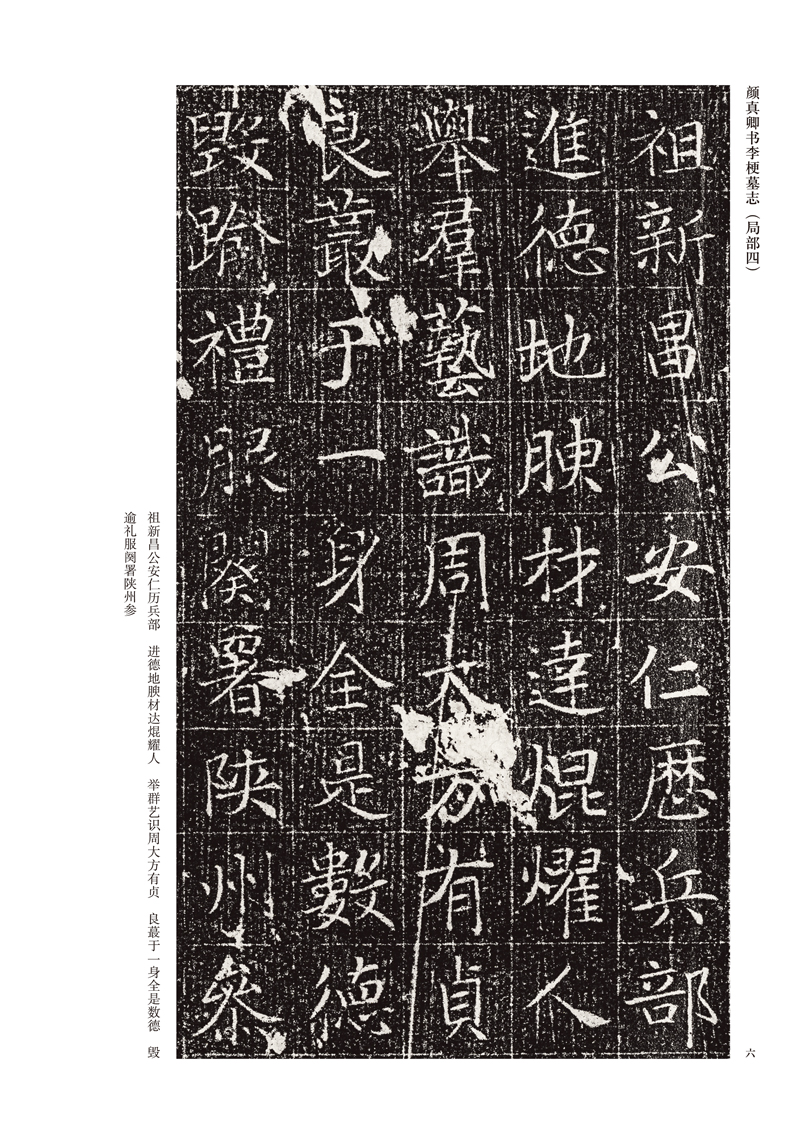 颜真卿书李梗墓志（局部四）
祖新昌公安仁历兵部
進德地腴材達焜耀人
舉羣藝識周大方有貞
良叢于一身全是數德
毀踰禮服闋署陝州参
祖新昌公安仁历兵部　进德地腴材达焜耀人　举群艺识周大方有贞　良蕞于一身全是数德　毁
逾礼服阕署陕州参
六